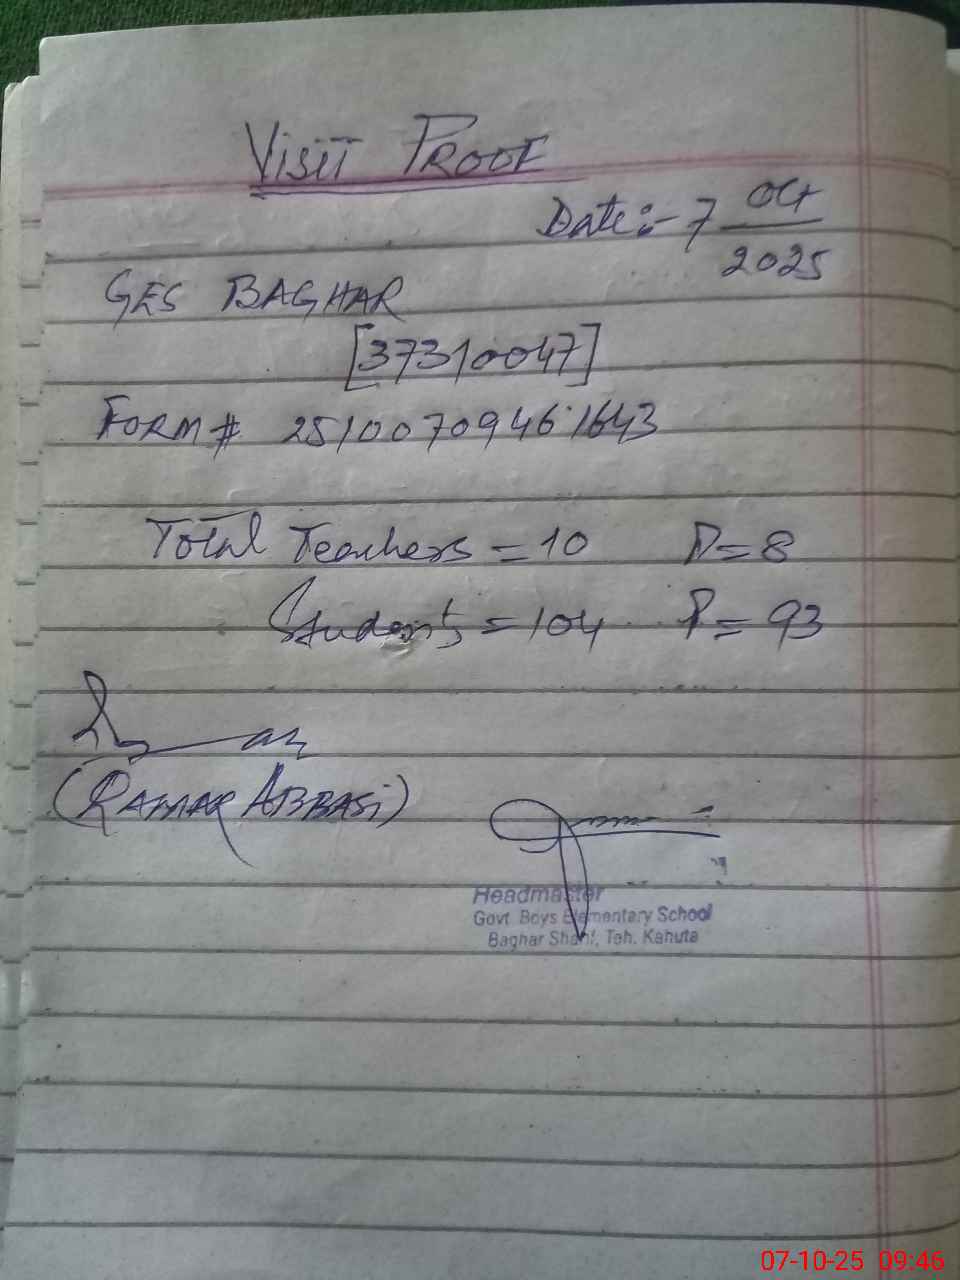 VISIT PROOF
Date:- 7 Oct 2025
GES BAGHAR
[37310047]
FORM # 25100709461643
Total Teachers = 10 P= 8
Students = 104 P= 93
(QAMAR ABBASI)
Headmaster
Govt. Boys Elementary School
Baghar Sharif, Teh. Kahuta
07-10-25 09:46